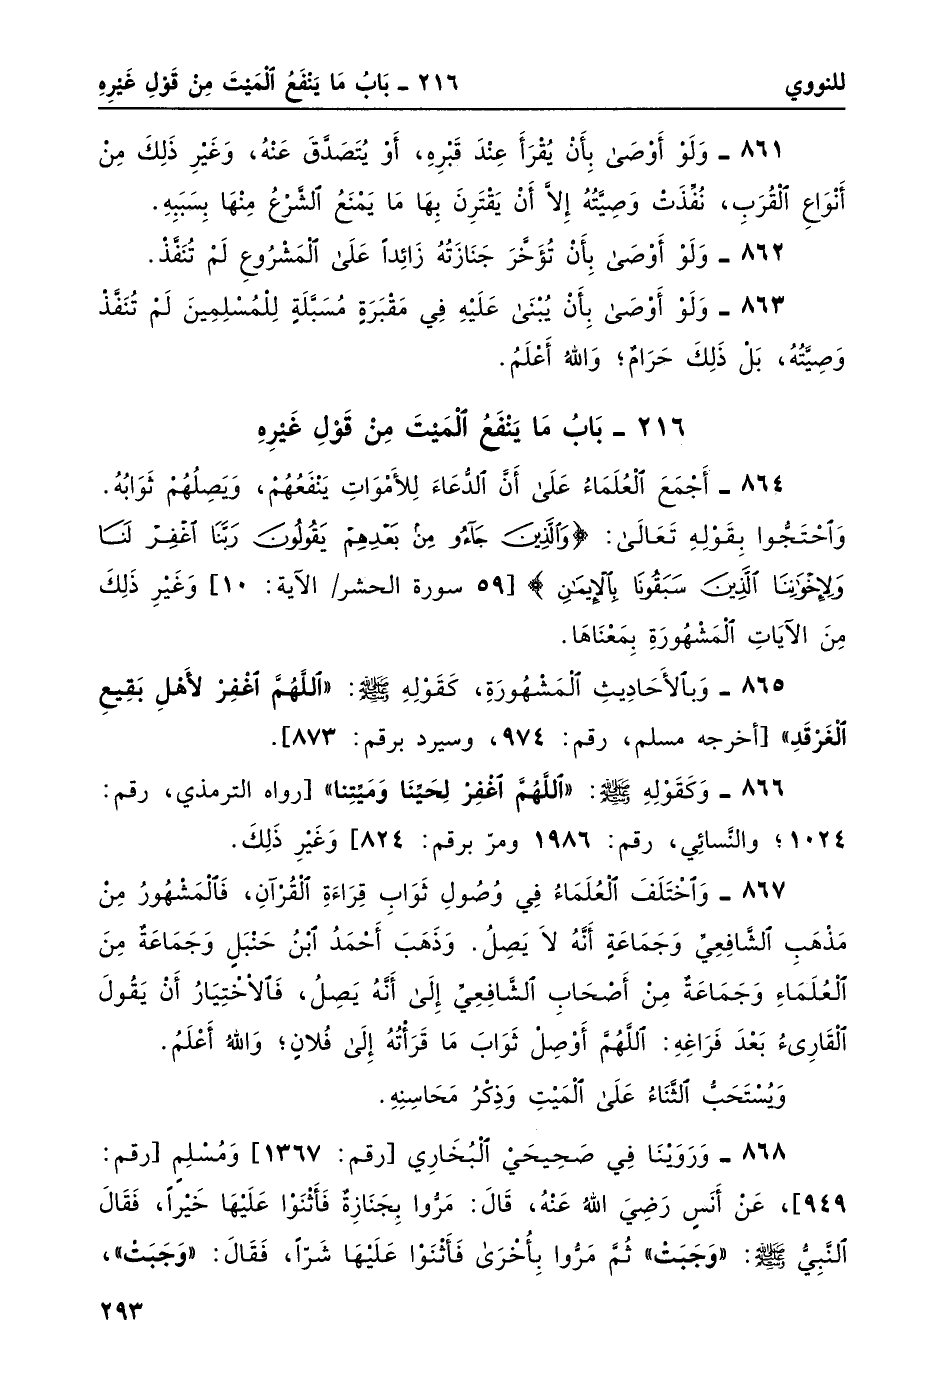 للنووي ٢١٦ ـ بَابُ مَا يَنْفَعُ ٱلْمَيْتَ مِنْ قَوْلِ غَيْرِهِ
٨٦١ ـ وَلَوْ أَوْصَىٰ بِأَنْ يُقْرَأَ عِنْدَ قَبْرِهِ، أَوْ يُتَصَدَّقَ عَنْهُ، وَغَيْرِ ذَلِكَ مِنْ
أَنْوَاعِ ٱلْقُرَبِ، نُفِّذَتْ وَصِيَّتُهُ إِلاَّ أَنْ يَقْتَرِنَ بِهَا مَا يَمْنَعُ ٱلشَّرْعُ مِنْهَا بِسَبَبِهِ.
٨٦٢ ـ وَلَوْ أَوْصَىٰ بِأَنْ تُؤَخَّرَ جَنَازَتُهُ زَائِداً عَلَىٰ ٱلْمَشْرُوعِ لَمْ تُنَفَّذْ.
٨٦٣ ـ وَلَوْ أَوْصَىٰ بِأَنْ يُبْنَىٰ عَلَيْهِ فِي مَقْبَرَةٍ مُسَبَّلَةٍ لِلْمُسْلِمِينَ لَمْ تُنَفَّذْ
وَصِيَّتُهُ، بَلْ ذَلِكَ حَرَامٌ؛ وَاللهُ أَعْلَمُ.
٢١٦ ـ بَابُ مَا يَنْفَعُ ٱلْمَيْتَ مِنْ قَوْلِ غَيْرِهِ
٨٦٤ ـ أَجْمَعَ ٱلْعُلَمَاءُ عَلَىٰ أَنَّ ٱلدُّعَاءَ لِلأَمْوَاتِ يَنْفَعُهُمْ، وَيَصِلُهُمْ ثَوَابُهُ.
وَٱحْتَجُّوا بِقَوْلِهِ تَعَالَىٰ: ﴿وَالَّذِينَ جَآءُو مِنْ بَعْدِهِمْ يَقُولُونَ رَبَّنَا ٱغْفِرْ لَنَا
وَلِإِخْوَٰنِنَا ٱلَّذِينَ سَبَقُونَا بِٱلْإِيمَٰنِ﴾ [٥٩ سورة الحشر/ الآية: ١٠] وَغَيْرِ ذَلِكَ
مِنَ الآيَاتِ ٱلْمَشْهُورَةِ بِمَعْنَاهَا.
٨٦٥ ـ وَبِالأَحَادِيثِ ٱلْمَشْهُورَةِ، كَقَوْلِهِ ﷺ: «ٱللَّهُمَّ ٱغْفِرْ لأَهْلِ بَقِيعِ
ٱلْغَرْقَدِ» [أخرجه مسلم، رقم: ٩٧٤، وسيرد برقم: ٨٧٣].
٨٦٦ ـ وَكَقَوْلِهِ ﷺ: «ٱللَّهُمَّ ٱغْفِرْ لِحَيِّنَا وَمَيِّتِنا» [رواه الترمذي، رقم:
١٠٢٤؛ والنَّسائِي، رقم: ١٩٨٦ ومرّ برقم: ٨٢٤] وَغَيْرِ ذَلِكَ.
٨٦٧ ـ وَٱخْتَلَفَ ٱلْعُلَمَاءُ فِي وُصُولِ ثَوَابِ قِرَاءَةِ ٱلْقُرْآنِ، فَٱلْمَشْهُورُ مِنْ
مَذْهَبِ ٱلشَّافِعِيِّ وَجَمَاعَةٍ أَنَّهُ لاَ يَصِلُ. وَذَهَبَ أَحْمَدُ ٱبْنُ حَنْبَلٍ وَجَمَاعَةٌ مِنَ
ٱلْعُلَمَاءِ وَجَمَاعَةٌ مِنْ أَصْحَابِ ٱلشَّافِعِيِّ إِلَىٰ أَنَّهُ يَصِلُ، فَٱلاخْتِيَارُ أَنْ يَقُولَ
ٱلْقَارِىءُ بَعْدَ فَرَاغِهِ: ٱللَّهُمَّ أَوْصِلْ ثَوَابَ مَا قَرَأْتُهُ إِلَىٰ فُلانٍ؛ وَاللهُ أَعْلَمُ.
وَيُسْتَحَبُّ ٱلثَّنَاءُ عَلَىٰ ٱلْمَيْتِ وَذِكْرُ مَحَاسِنِهِ.
٨٦٨ ـ وَرَوَيْنَا فِي صَحِيحَيْ ٱلْبُخَارِي [رقم: ١٣٦٧] وَمُسْلِمٍ [رقم:
٩٤٩]، عَنْ أَنَسٍ رَضِيَ اللهُ عَنْهُ، قَالَ: مَرُّوا بِجَنَازِةٌ فَأَثْنَوْا عَلَيْهَا خَيْراً، فَقَالَ
ٱلنَّبِيُّ ﷺ: «وَجَبَتْ» ثُمَّ مَرُّوا بِأُخْرَىٰ فَأَثْنَوْا عَلَيْهَا شَرّاً، فَقَالَ: «وَجَبَتْ»،
٢٩٣